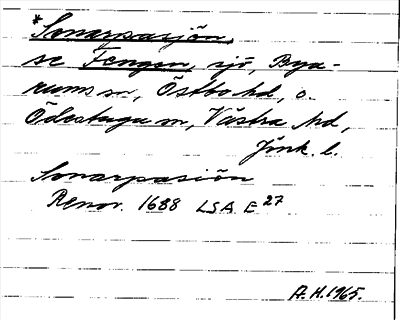 *Sonarpasjön,
se Fengen, sjö, Bya-
rums sn, Östbo hd, o.
Ödestugu sn, Västra hd,
Jönk. l.
Sonarpasiön
Renov. 1688 LSA E 27
A.H. 1965.